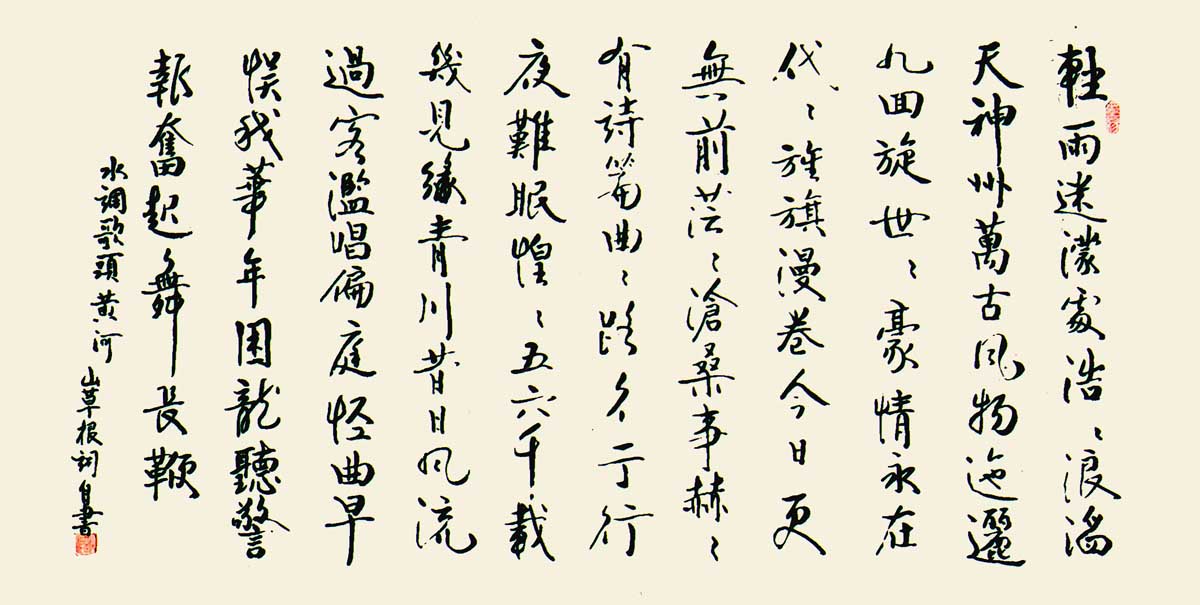 輕雨迷濛處浩〻浪滔
天神州萬古風物迤邐
九回旋世〻豪情永在
代〻旌旗漫卷今日更
無前茫〻滄桑事赫〻
有詩篇曲〻路彳亍行
夜難眠惶〻五六千載
幾見緣青川昔日風流
過客濫唱偏庭怪曲早
悮我華年困龍聽警
報奮起舞長鞭
水調歌頭 黃河
山草根詞自書